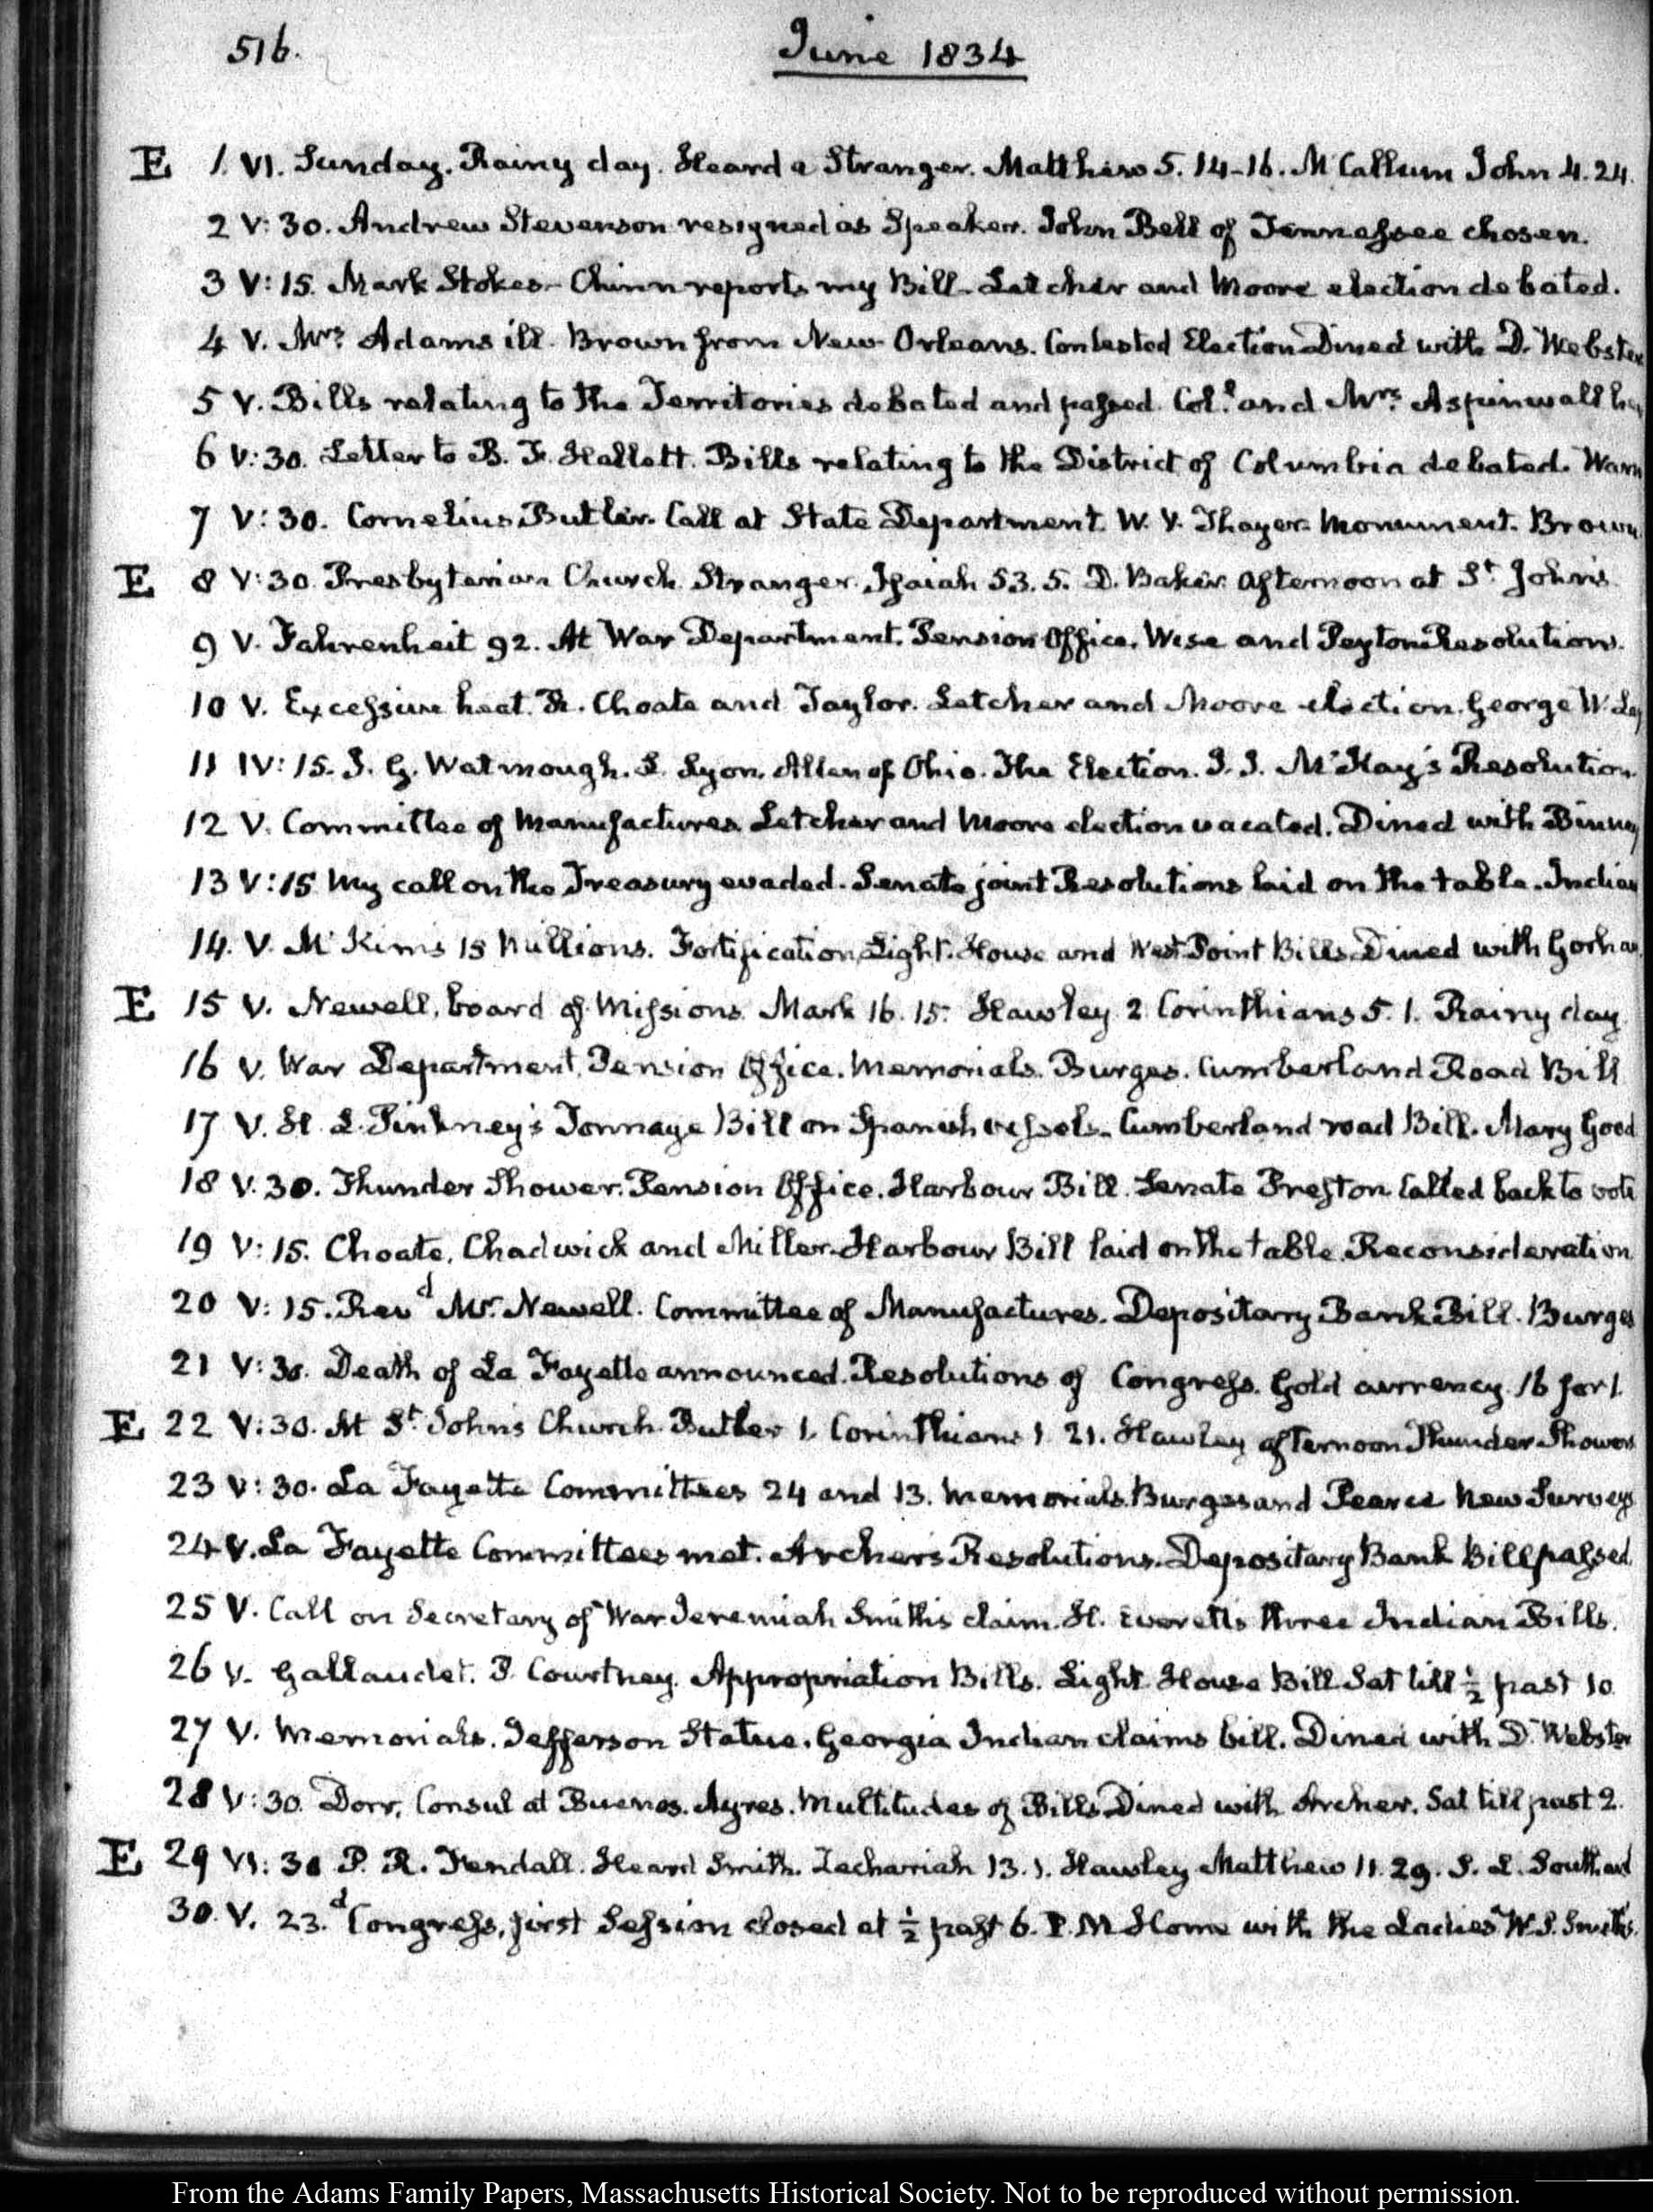 516.
June 1834
E 1. VI. Sunday. Rainy day. Heard a Stranger. Matthew 5. 14-16. McCallum John 4. 24.
2 V: 30. Andrew Stevenson resigned as Speaker. John Bell of Tennessee chosen.
3 V: 15. Mark Stokes - Chinn reports my Bill - Letcher and Moore election debated.
4 V. Mrs. Adams ill. Brown from New Orleans. Contested Election Dined with D. Webster
5 V. Bills relating to the Territories debated and passed. Col. and Mrs. Aspinwall
6 V: 30. Letter to B. F. Hallett. Bills relating to the District of Columbia debated. Warm
7 V: 30. Cornelius Butler. Call at State Department. W. V. Thayer. Monument. Brown
E 8 V: 30. Presbyterian Church. Stranger. Isaiah 53. 5. D. Baker. Afternoon at St. John's
9 V. Fahrenheit 92. At War Department. Pension Office. Wise and Peyton Resolution.
10 V. Excessive heat. R. Choate and Taylor. Letcher and Moore election. George W. Lay
11 IV: 15. J. G. Watmough. L. Lyon. Allen of Ohio. The Election. I. I. McKay's Resolution
12 V. Committee of Manufactures. Letcher and Moore election vacated. Dined with Binney
13 V: 15 My call on the Treasury evaded. Senate joint Resolutions laid on the table. Indian
14. V. McKim's 15 Millions. Fortification, Light-House and West Point Bills. Dined with Gorham
E 15 V. Newell, board of Missions. Mark 16. 15. Hawley. 2. Corinthians 5. 1. Rainy day
16 V. War Department, Pension Office. Memorials. Burges. Cumberland Road Bill
17 V. H. L. Pinkney's Tonnage Bill on Spanish vessels. Cumberland road Bill. Mary Good
18 V. 30. Thunder Shower. Pension Office. Harbour Bill. Senate Preston called back to vote
19 V: 15. Choate, Chadwick and Miller. Harbour Bill laid on the table. Reconsideration
20 V: 15. Revd Mr. Newell. Committee of Manufactures. Depositary Bank Bill. Burges
21 V: 30. Death of La Fayette announced. Resolutions of Congress. Gold currency. 16 for 1.
E 22 V: 30. At St. John's Church. Butler 1. Corinthians 1. 21. Hawley afternoon Thunder Shower
23 V: 30. La Fayette Committees 24 and 13. Memorials. Burges and Pearce New Surveys
24 V. La Fayette Committees met. Archer's Resolutions. Depositary Bank Bill passed.
25 V. Call on Secretary of War Jeremiah Smith's claim. H. Everett's three Indian Bills.
26 V. Gallaudet. P. Courtney. Appropriation Bills. Light House Bill. Sat till ½ past 10
27 V. Memorials. Jefferson Statue. Georgia Indian claims bill. Dined with D. Webster
28 V: 30. Dorr, Consul at Buenos Ayres. Multitudes of Bills. Dined with Archer. Sat till past 2.
E 29 VI: 30 P. R. Fendall. Heard Smith. Zechariah 13. 1. Hawley Matthew 11. 29. S. L. Southard
30. V. 23.d Congress, first Session closed at ½ past 6. P.M Home with the Ladies W. S. Smith's.
From the Adams Family Papers, Massachusetts Historical Society. Not to be reproduced without permission.